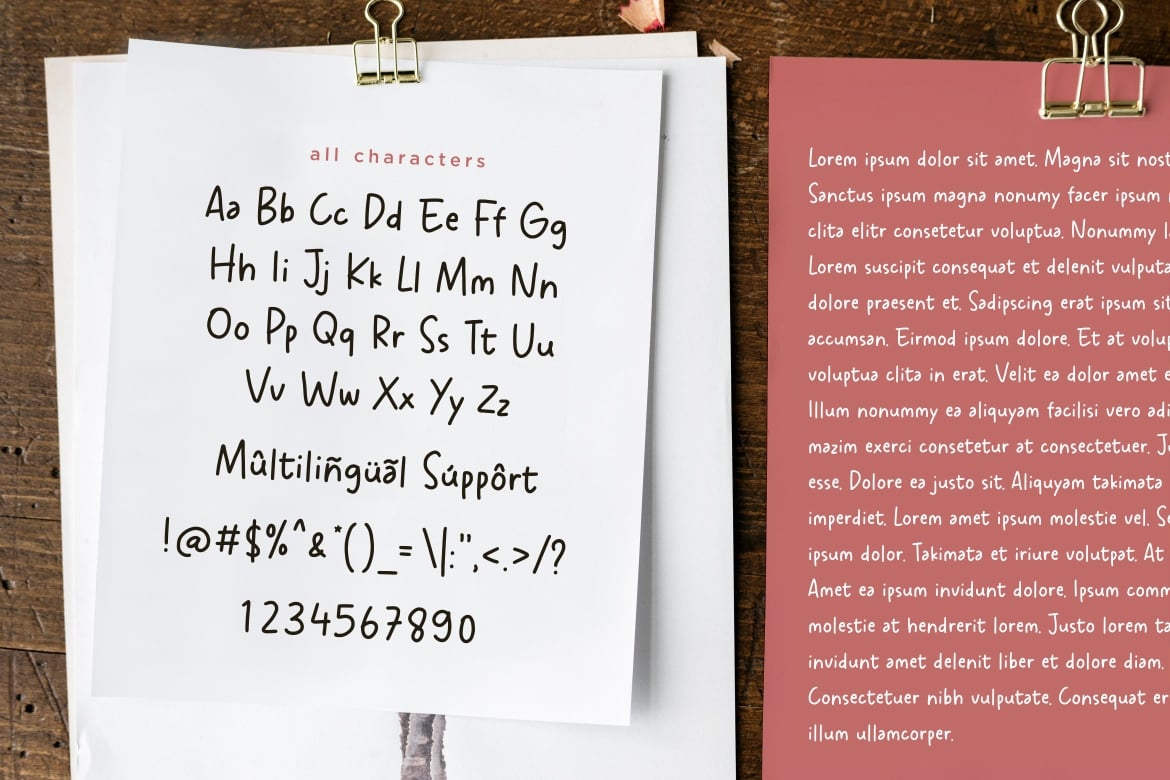 all characters
Aa Bb Cc Dd Ee Ff Gg
Hh Ii Jj Kk Ll Mm Nn
Oo Pp Qq Rr Ss Tt Uu
Vv Ww Xx Yy Zz
Mûltiliñgüãl Súppôrt
!@#$%^&*()_= \|:",<.>/?
1234567890
Lorem ipsum dolor sit amet. Magna sit
Sanctus ipsum magna nonumy facer ipsum
clita elitr consetetur voluptua. Nonummy
Lorem suscipit consequat et delenit
dolore praesent et. Sadipscing erat ipsum
accumsan. Eirmod ipsum dolore. Et at
voluptua clita in erat. Velit ea dolor amet
Illum nonummy ea aliquyam facilisi vero
mazim exerci consetetur at consectetuer.
esse. Dolore ea justo sit. Aliquyam takimata
imperdiet. Lorem amet ipsum molestie vel.
ipsum dolor. Takimata et iriure volutpat. At
Amet ea ipsum invidunt dolore. Ipsum
molestie at hendrerit lorem. Justo lorem
invidunt amet delenit liber et dolore diam.
Consectetuer nibh vulputate. Consequat
illum ullamcorper.